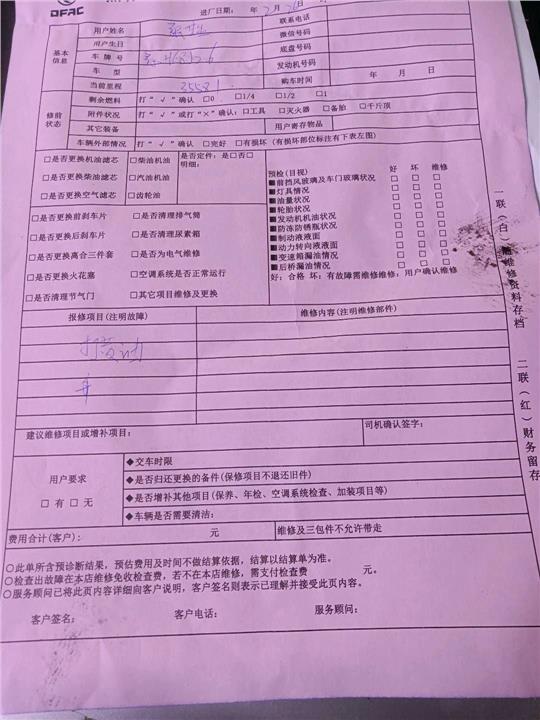 DFAC
进厂日期： 年 2 月 26 日
基本信息
用户姓名
联系电话
用户生日
微信号码
车 牌 号
底盘号码
车 型
发动机号码
当前里程 35581 购车时间 年 月 日
修前状态
剩余燃料 打“√”确认 □0 □1/4 □1/2 □1
附件状况 打“√”或打“×”确认：□工具 □灭火器 □备胎 □千斤顶
其它装备 用户寄存物品
车辆外部情况 打“√”确认 □完好 □有损坏（有损坏部位标注有下表左图）
□是否更换机油滤芯 □柴油机油 是否定件：是□否□
明细：
□是否更换柴油滤芯 □汽油机油
□是否更换空气滤芯 □齿轮油
□是否更换前刹车片 □是否清理排气筒
□是否更换后刹车片 □是否清理尿素箱
□是否更换离合三件套 □是否为电气维修
□是否更换火花塞 □空调系统是否正常运行
□是否清理节气门 □其它项目维修及更换
预检(目视) 好 坏 维修
■前挡风玻璃及车门玻璃状况 □ □ □
■灯具情况 □ □ □
■油量状况 □ □ □
■轮胎状况 □ □ □
■发动机机油状况 □ □ □
■防冻防锈瓶状况 □ □ □
■制动液液面 □ □ □
■动力转向液液面 □ □ □
■变速箱漏油情况 □ □ □
■后桥漏油情况 □ □ □
好：合格 坏：有故障需维修维修：用户确认维修
报修项目(注明故障) 维修内容(注明维修部件)
打黄油
建议维修项目或增补项目： 司机确认签字：
用户要求
□有 □无
◆交车时限
◆是否归还更换的备件(保修项目不退还旧件)
◆是否增补其他项目(保养、年检、空调系统检查、加装项目等)
◆车辆是否需要清洁：
费用合计(客户)： 元 维修及三包件不允许带走
○此单所含预诊断结果，预估费用及时间不做结算依据，结算以结算单为准。
○检查出故障在本店维修免收检查费，若不在本店维修，需支付检查费 元。
○服务顾问已将此页内容详细向客户说明，客户签名则表示已理解并接受此页内容。
客户签名： 客户电话： 服务顾问：
一联(白)维修资料存档 二联(红)财务留存